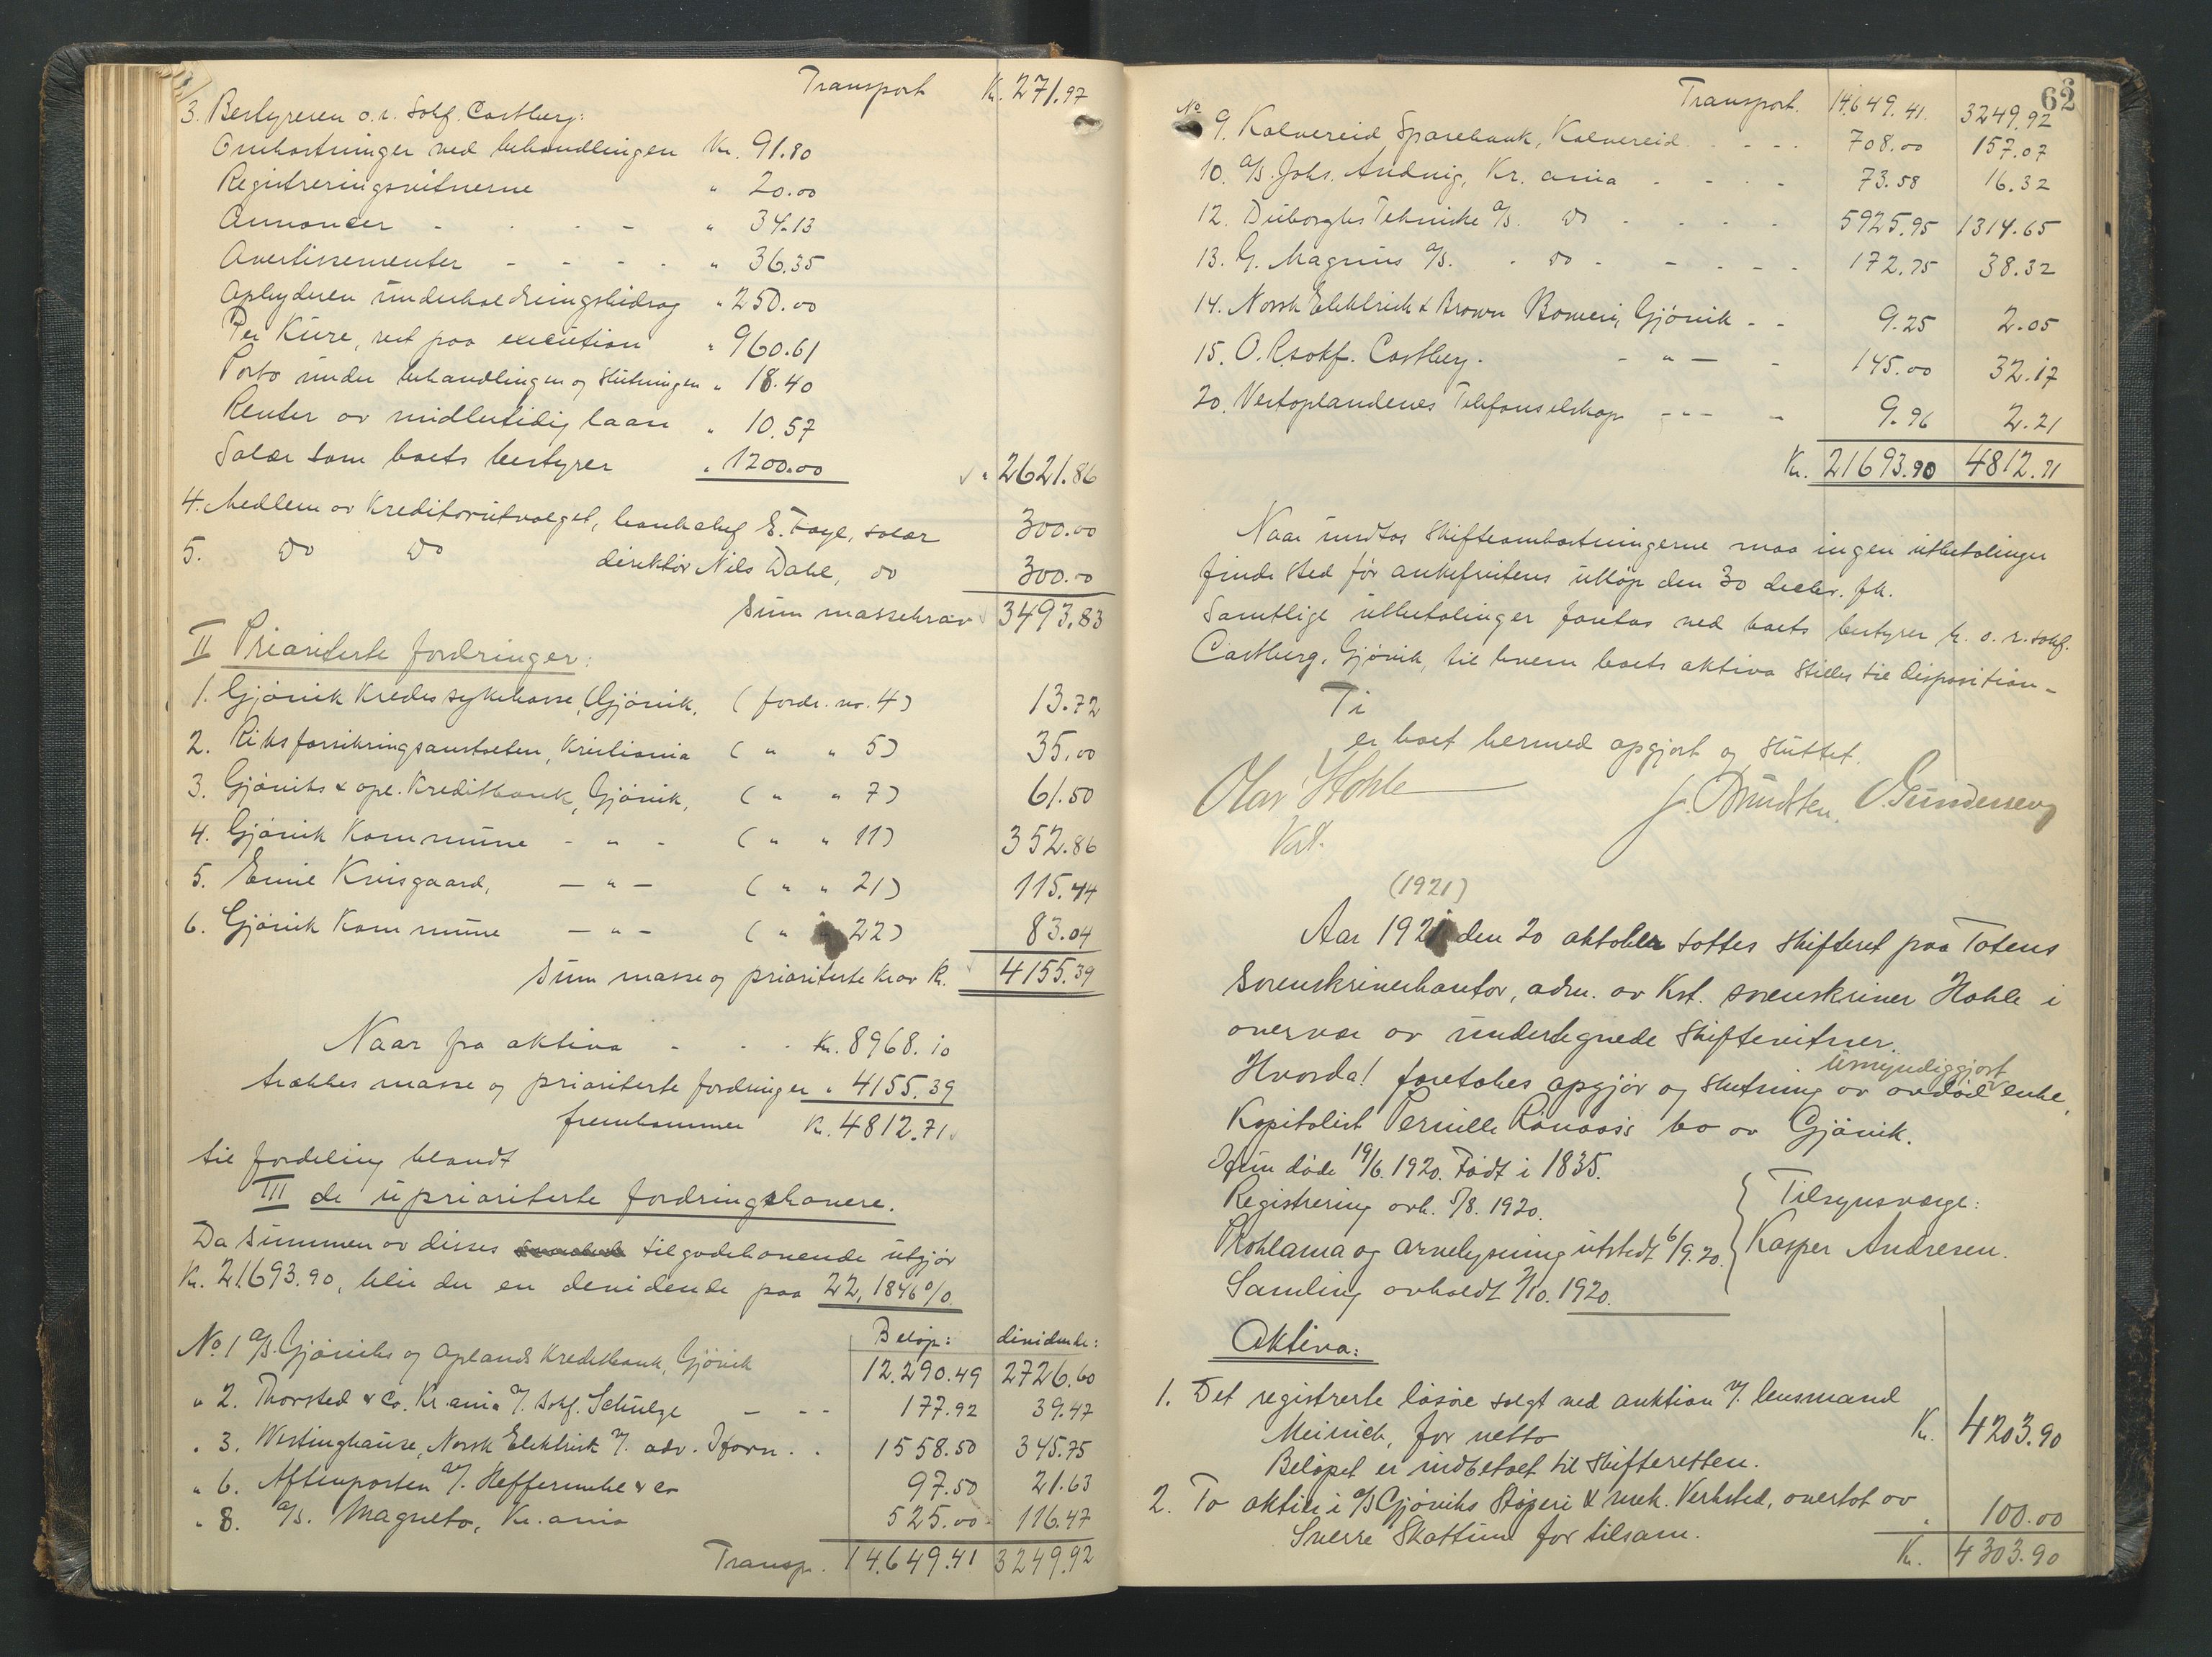 Transport Kr. 271.97
3. Bestyreren o.r. Sakf. Castberg:
Omkostninger ved behandlingen Kr. 91.80
Registreringsvitnerne " 20.00
Annoncer - - - - " 34.13
Avertissementer - - - - " 36.35
Opbyderen underholdningsbidrag " 250.00
Per Kure, rest paa execution " 960.61
Porto under behandlingen og slutningen " 18.40
Renter av midlertidig laan " 10.57
Salær som boets bestyrer " 1200.00 " 2621.86
4. Medlem av kreditorutvalget, bankchef E. Faye, salær 300.00
5. Do Do direktør Nils Dahl, do 300.00
Sum massekrav 3493.83
II Prioriterte fordringer:
1. Gjøvik Kredssykekasse, Gjøvik, (fordr. no. 4) 13.72
2. Riksforsikringsanstalten, Kristiania ( " " 5) 35.00
3. Gjøviks & opl. Kreditbank, Gjøvik, ( " " 7) 61.50
4. Gjøvik Kommune - " - ( " " 11) 352.86
5. Emil Kvisgaard, - " - ( " " 21) 115.44
6. Gjøvik Kommune - " - ( " " 22) 83.04
Sum masse og prioriterte krav Kr. 4155.39
Naar fra aktiva - - - Kr. 8968.10
trækkes masse og prioriterte fordringer " 4155.39
fremkommer Kr. 4812.71
til fordeling blandt
III de uprioriterte fordringshavere.
Da summen av disses tilgodehavende utgjør
Kr. 21693.90, blir der en devidende paa 22,1846%
Beløp: dividende:
No 1 a/s. Gjøviks og Oplands Kreditbank, Gjøvik 12.290.49 2726.60
" 2. Thorsted & Co. Kr.ania v/. Sakf. Schulze - - - 177.92 39.47
" 3. Westinghause, Norsk Elektrisk v/. adv. Ifarn. . 1558.50 345.75
" 6. Aftenposten v/. Heffermehl & co 97.50 21.63
" 8. a/s. Magneto, Kr.ania 525.00 116.47
Transp. 14.649.41 3249.92
62
Transport. 14.649.41. 3249.92
No 9. Kolvereid Sparebank, Kolvereid - - - - 708.00 157.07
10. a/s. Johs. Andvig, Kr.ania - - - - 73.58 16.32
12. Duborghs Tekniske a/s. do - - - - 5925.95 1314.65
13. G. Magnus a/s. - do - - - - - 172.75 38.32
14. Norsk Elektrisk & Brown Boweri, Gjøvik - - 9.25 2.05
15. O. R.sakf. Castberg. - " - - 145.00 32.17
20. Vestoplandenes Telefonselskap - - - - 9.96 2.21
Kr. 21693.90 4812.71
Naar undtas skifteomkostningerne maa ingen utbetalinger
finde sted før ankefristens utløp den 30 decbr. fk.
Samtlige utbetalinger foretas ved boets bestyrer hr. o.r.sakf.
Castberg, Gjøvik, til hvem boets aktiva stilles til disposition -
Ti
er boet hermed opgjort og sluttet.
Olav Hohle J. Knudsen. O. Gundersen
Kst.
(1921)
Aar 1921 den 20 oktober sattes skifteret paa Totens
Sorenskriverkontor, adm. av Kst. sorenskriver Hohle i
overvær av undertegnede skiftevitner.
umyndiggjort
Hvorda! foretokes opgjør og slutning av avdød enke,
Kapitalist Pernille Rånaas's bo av Gjøvik.
Hun døde 19/6. 1920. Født i 1835.
Registrering avh. 5/8. 1920. Tilsynsværge:
Proklama og arvelysning utstedt 6/9.20. Kasper Andresen.
Samling avholdt 7/10. 1920.
Aktiva:
1. Det registrerte løsøre solgt ved auktion v/. lensmand
Meinich, for netto Kr. 4203.90
Beløpet er indbetalt til skifteretten.
2. To aktier i a/s Gjøviks Støperi & mek. Verksted, overtat av
Sverre Skattum for tilsam. " 100.00
Kr. 4303.90